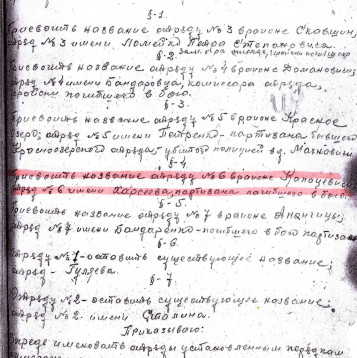 §-1.
Присвоить название отряду №3 в районе Скавщин,
отряд №3 имени Ломейко Петра Степановича.
§-2.
Присвоить название отряду №4 в районе Доманович
отряд №4 имени Бондаровца, комиссара отряда,
погибшего в бою.
§-3.
Присвоить название отряду №5 в районе Красное
озеро, отряд №5 имени Петренко-партизана бывшего
Краснозерского отряда, убитого полицией в д. Махновичи
§-4.
Присвоить название отряду №6 в районе Копоцевичи
отряд №6 имени партизана погибшего в бою.
§-5.
Присвоить название отряду №7 в районе
отряд №7 имени Бондаренко-погибшего в бою партизана
§-6.
Отряду №1-оставить существующее название;
отряд - Гуляева.
§-7.
Отряду №2-оставить существующую название:
отряд №2-имени Сталина.
Приказываю:
именовать отряды установленным порядком